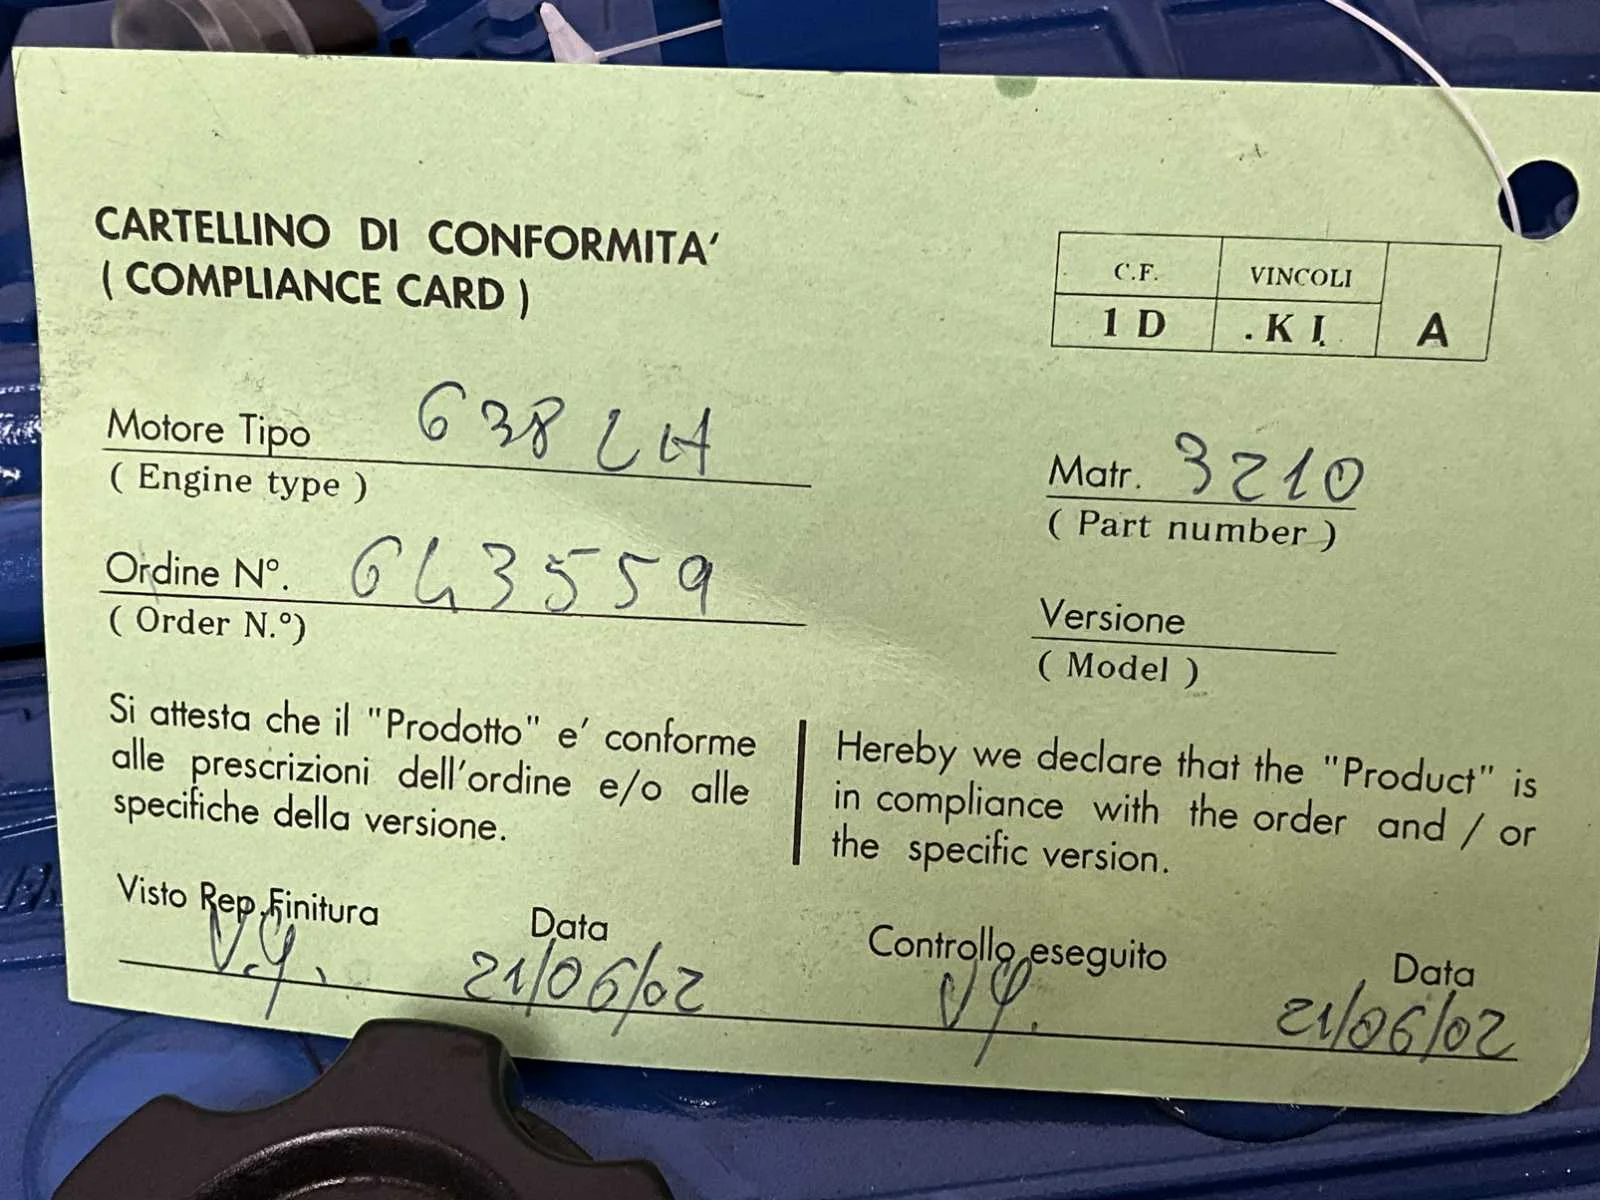 CARTELLINO DI CONFORMITA'
( COMPLIANCE CARD )
C.F. VINCOLI
1 D .K I. A
Motore Tipo 638 LH
( Engine type )
Matr. 3210
( Part number )
Ordine N°. 643559
( Order N.°)
Versione
( Model )
Si attesta che il "Prodotto" e' conforme
alle prescrizioni dell'ordine e/o alle
specifiche della versione.
Hereby we declare that the "Product" is
in compliance with the order and / or
the specific version.
Visto Rep.Finitura Data
21/06/02
Controllo eseguito Data
21/06/02